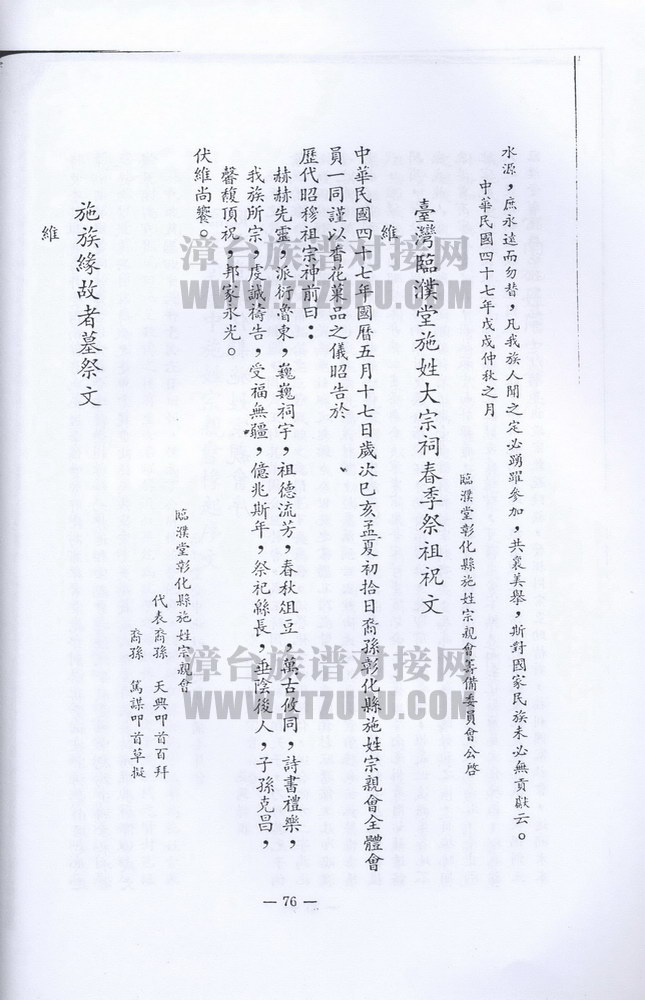 水源，庶永遠而勿替，凡我族人聞之定必踴躍參加，共襄美舉，斯對國家民族未必無貢獻云。
中華民國四十七年戊戌仲秋之月
臨濮堂彰化縣施姓宗親會籌備委員會公啓
臺灣臨濮堂施姓大宗祠春季祭祖祝文
維
中華民國四十七年國曆五月十七日歲次巳亥孟夏初拾日裔孫彰化縣施姓宗親會全體會
員一同謹以香花菓品之儀昭告於
歷代昭穆祖宗神前曰：
赫赫先靈，派衍魯東，巍巍祠宇，祖德流芳，春秋俎豆，萬古攸同，詩書禮樂，
我族所宗，虔誠禱告，受福無疆，億兆斯年，祭祀緜長，垂陰後人，子孫克昌，
馨馥頂祝，邦家永光。
伏維尚饗。
臨濮堂彰化縣施姓宗親會
代表裔孫 天興叩首百拜
裔孫 篤謀叩首草擬
施族緣故者墓祭文
維
— 76 —
漳台族谱对接网
WWW.ZTZUPU.COM
漳台族谱对接网
WWW.ZTZUPU.COM